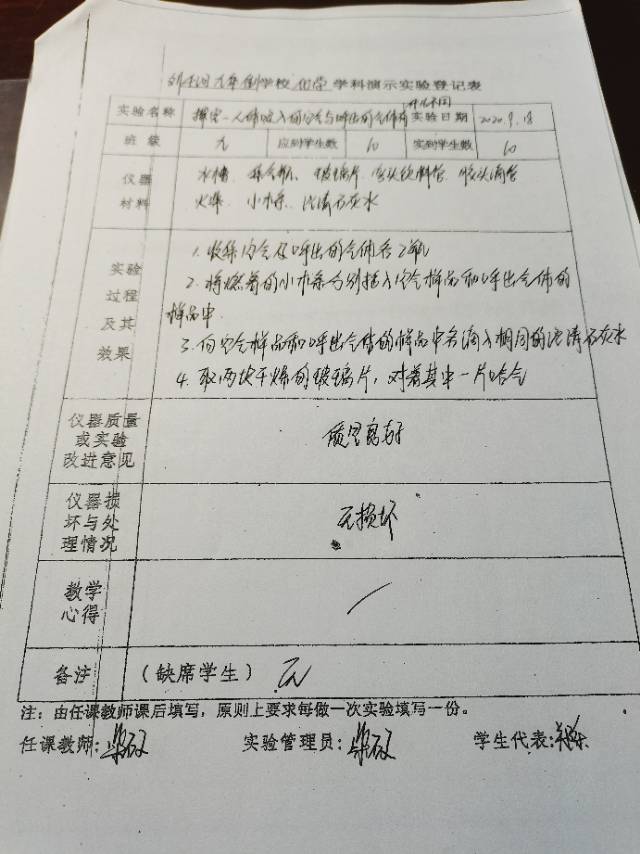 九年制学校 化学 学科演示实验登记表
实验名称 探究人体吸入的空气与呼出的气体有什么不同 实验日期 2020.9.18
班级 九 应到学生数 60 实到学生数 60
仪器 水槽、集气瓶、玻璃片、弯头饮料管、胶头滴管
材料 火柴、小木条、澄清石灰水
实验
过程
及其
效果
1. 收集空气及呼出的气体各2瓶
2. 将燃着的小木条分别插入空气样品和呼出气体的
样品中.
3. 向空气样品和呼出气体的样品中各滴入相同的澄清石灰水
4. 取两块干燥的玻璃片，对着其中一片哈气
仪器质量
或实验
改进意见
质量良好
仪器损
坏与处
理情况
无损坏
教学
心得
备注 （缺席学生） 无
注：由任课教师课后填写，原则上要求每做一次实验填写一份。
任课教师： 实验管理员： 学生代表：